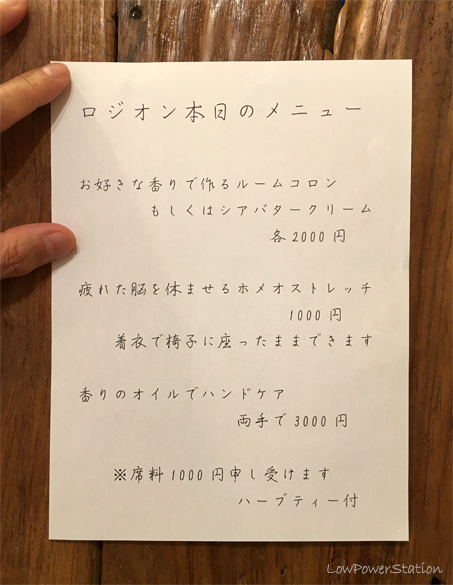 ロジオン本日のメニュー
お好きな香りで作るルームコロン
もしくはシアバタークリーム
各2000円
疲れた脳を休ませるホメオストレッチ
1000円
着衣で椅子に座ったままできます
香りのオイルでハンドケア
両手で3000円
※席料1000円申し受けます
ハーブティー付
LowPowerStation